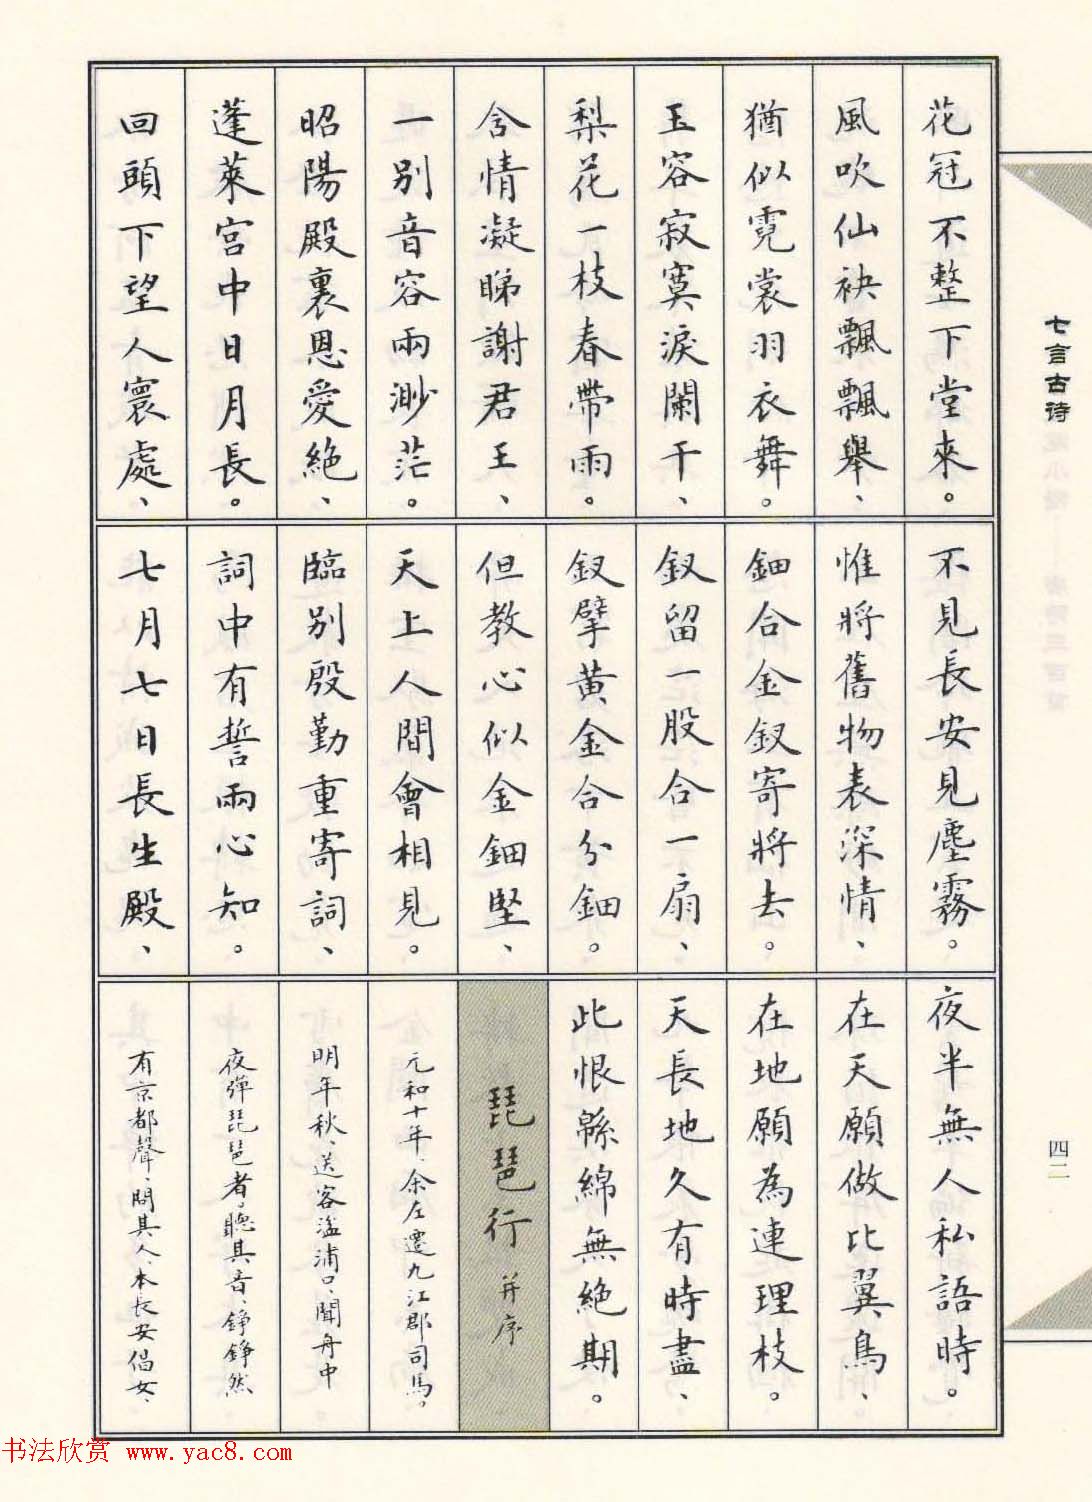 花冠不整下堂來。
風吹仙袂飄飄舉、
猶似霓裳羽衣舞。
玉容寂寞淚闌干、
梨花一枝春帶雨。
含情凝睇謝君王、
一別音容兩渺茫。
昭陽殿裏恩愛絕、
蓬萊宮中日月長。
回頭下望人寰處、
不見長安見塵霧。
惟將舊物表深情、
鈿合金釵寄將去。
釵留一股合一扇、
釵擘黃金合分鈿。
但教心似金鈿堅、
天上人間會相見。
臨別殷勤重寄詞、
詞中有誓兩心知。
七月七日長生殿、
夜半無人私語時。
在天願做比翼鳥、
在地願為連理枝。
天長地久有時盡、
此恨緜綿無絕期。
琵琶行 并序
元和十年、余左遷九江郡司馬。
明年秋、送客湓浦口、聞舟中
夜彈琵琶者、聽其音、錚錚然
有京都聲、問其人、本長安倡女、
七言古诗
四二
书法欣赏 www.yac8.com